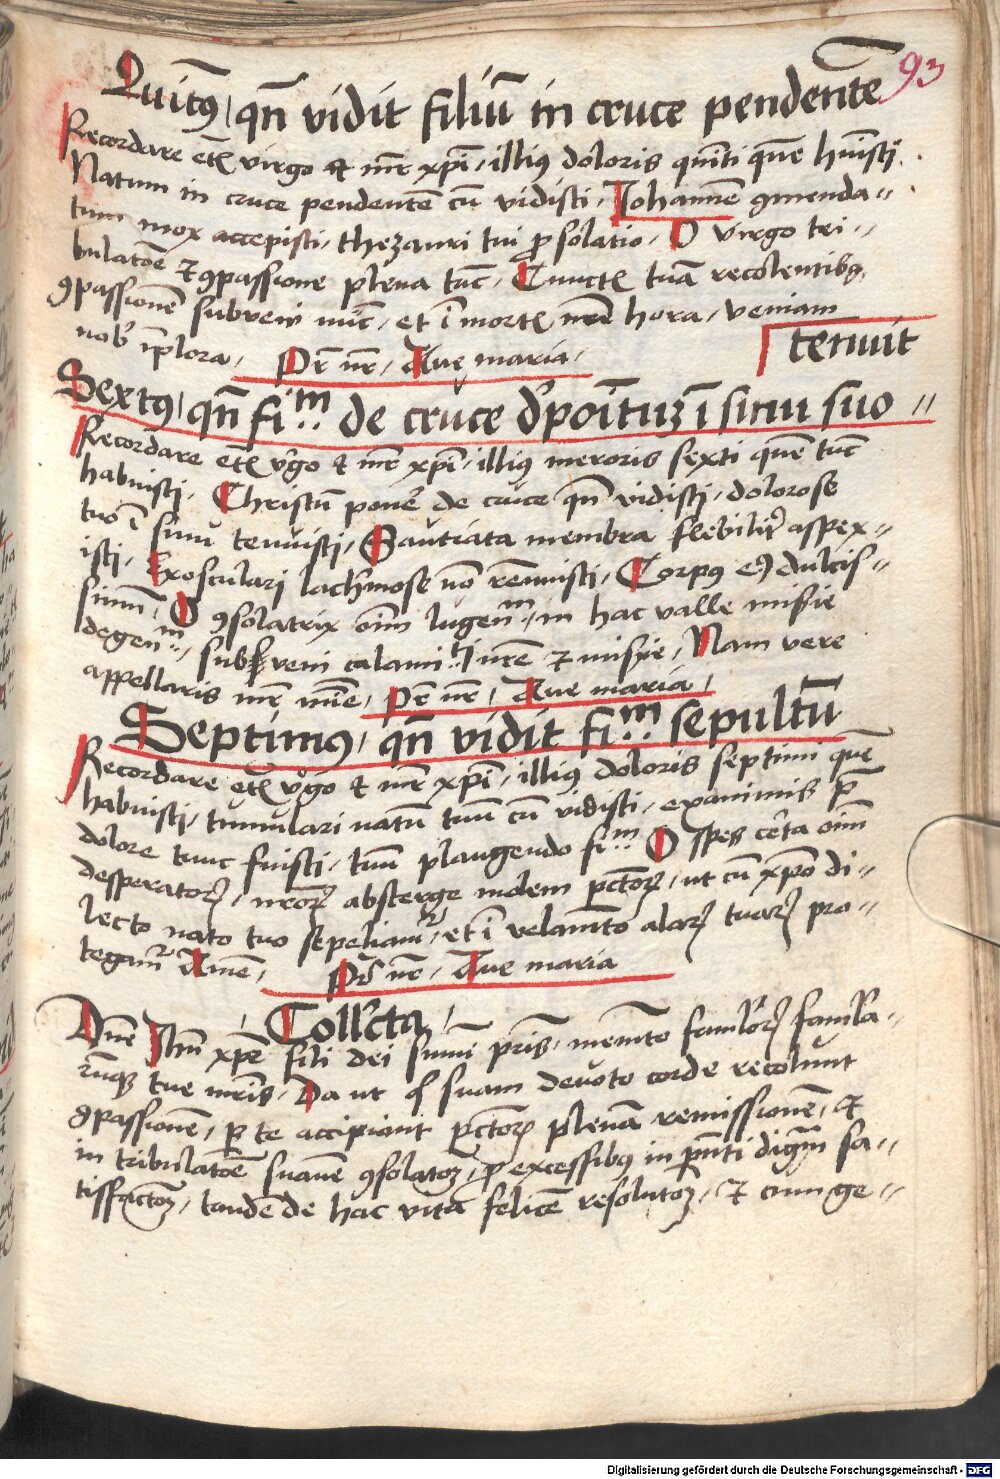 93
Quītꝰ, qn̄ vidit filiū in cruce pendentē
Recordare etc̄ virgo et mr̄ xp̄i, illiꝰ doloris quīti quē huīsti.
Natum in cruce pendentē cū vidisti, Iohannē ꝯmenda-
tum mox accepisti, thezauri tui ꝓ solatio, O virgo tri-
bulatōe et ꝯpassione plena tūc, Cunctꝭ tuā recolentibꝰ,
ꝯpassionē subveni nūc, et ī mortꝭ nr̄e hora, veniam
nob̄ īplora, Pr̄ nr̄, Aue maria,
tenuit
Sextꝰ, qn̄ fiᵐ de cruce dꝑoītuꝫ ī sinu suo
Recordare etc̄ v̊go et mr̄ xp̄i, illiꝰ meroris sexti quē tūc
habuisti, Christū ponē de cruce qn̄ vidisti, dolorose
tuo ī sinu tenuisti, Sautiata membra flebilit̄ aspex-
isti, Exosculari lach̄mose nō rēnuisti, Corpꝰ eꝰ dulcis-
simū, O ꝯsolatrix oīm lugenᵐ, in hac valle mis̄ie
degenᵐ, subveni calamiᵗⁱ nr̄e et mis̄ie, Nam vere
appellaris mr̄ mīe, Pr̄ nr̄, Aue maria,
Septimꝰ, qn̄ vidit fiᵐ sepultū
Recordare etc̄ v̊go et mr̄ xp̄i, illiꝰ doloris septimi quē
habuisti, tumulari natū tuū cū vidisti, exanimis p̄
dolore tunc fuisti, tuū plangendo fiᵐ O spes cērta oīm
desperatorꝝ, nr̄orꝝ absterge molem pc̄torꝝ, ut cū xp̄o di-
lecto nato tuo sepeliamᵘʳ, et ī velamīto alarꝝ tuarꝝ pro-
tegamᵘʳ Amē, Pr̄ nr̄, Aue maria
Collcta,
Dn̄e Ihū xp̄e fili dei summi pr̄is, memēto famlorꝝ famla-
rūqꝫ tue mr̄is, Da ut q̄ suam devoto corde recolunt
ꝯpassionē, ꝑ te accipiant pc̄torꝝ plenā remissionē, et
in tribulatōe suauē ꝯsolatōꝫ, ꝓ excessibꝰ in pn̄ti dignā sa-
tisfactōꝫ, tandē de hac vita felicē resolutōꝫ, et cum ge-
Digitalisierung gefördert durch die Deutsche Forschungsgemeinschaft - DFG